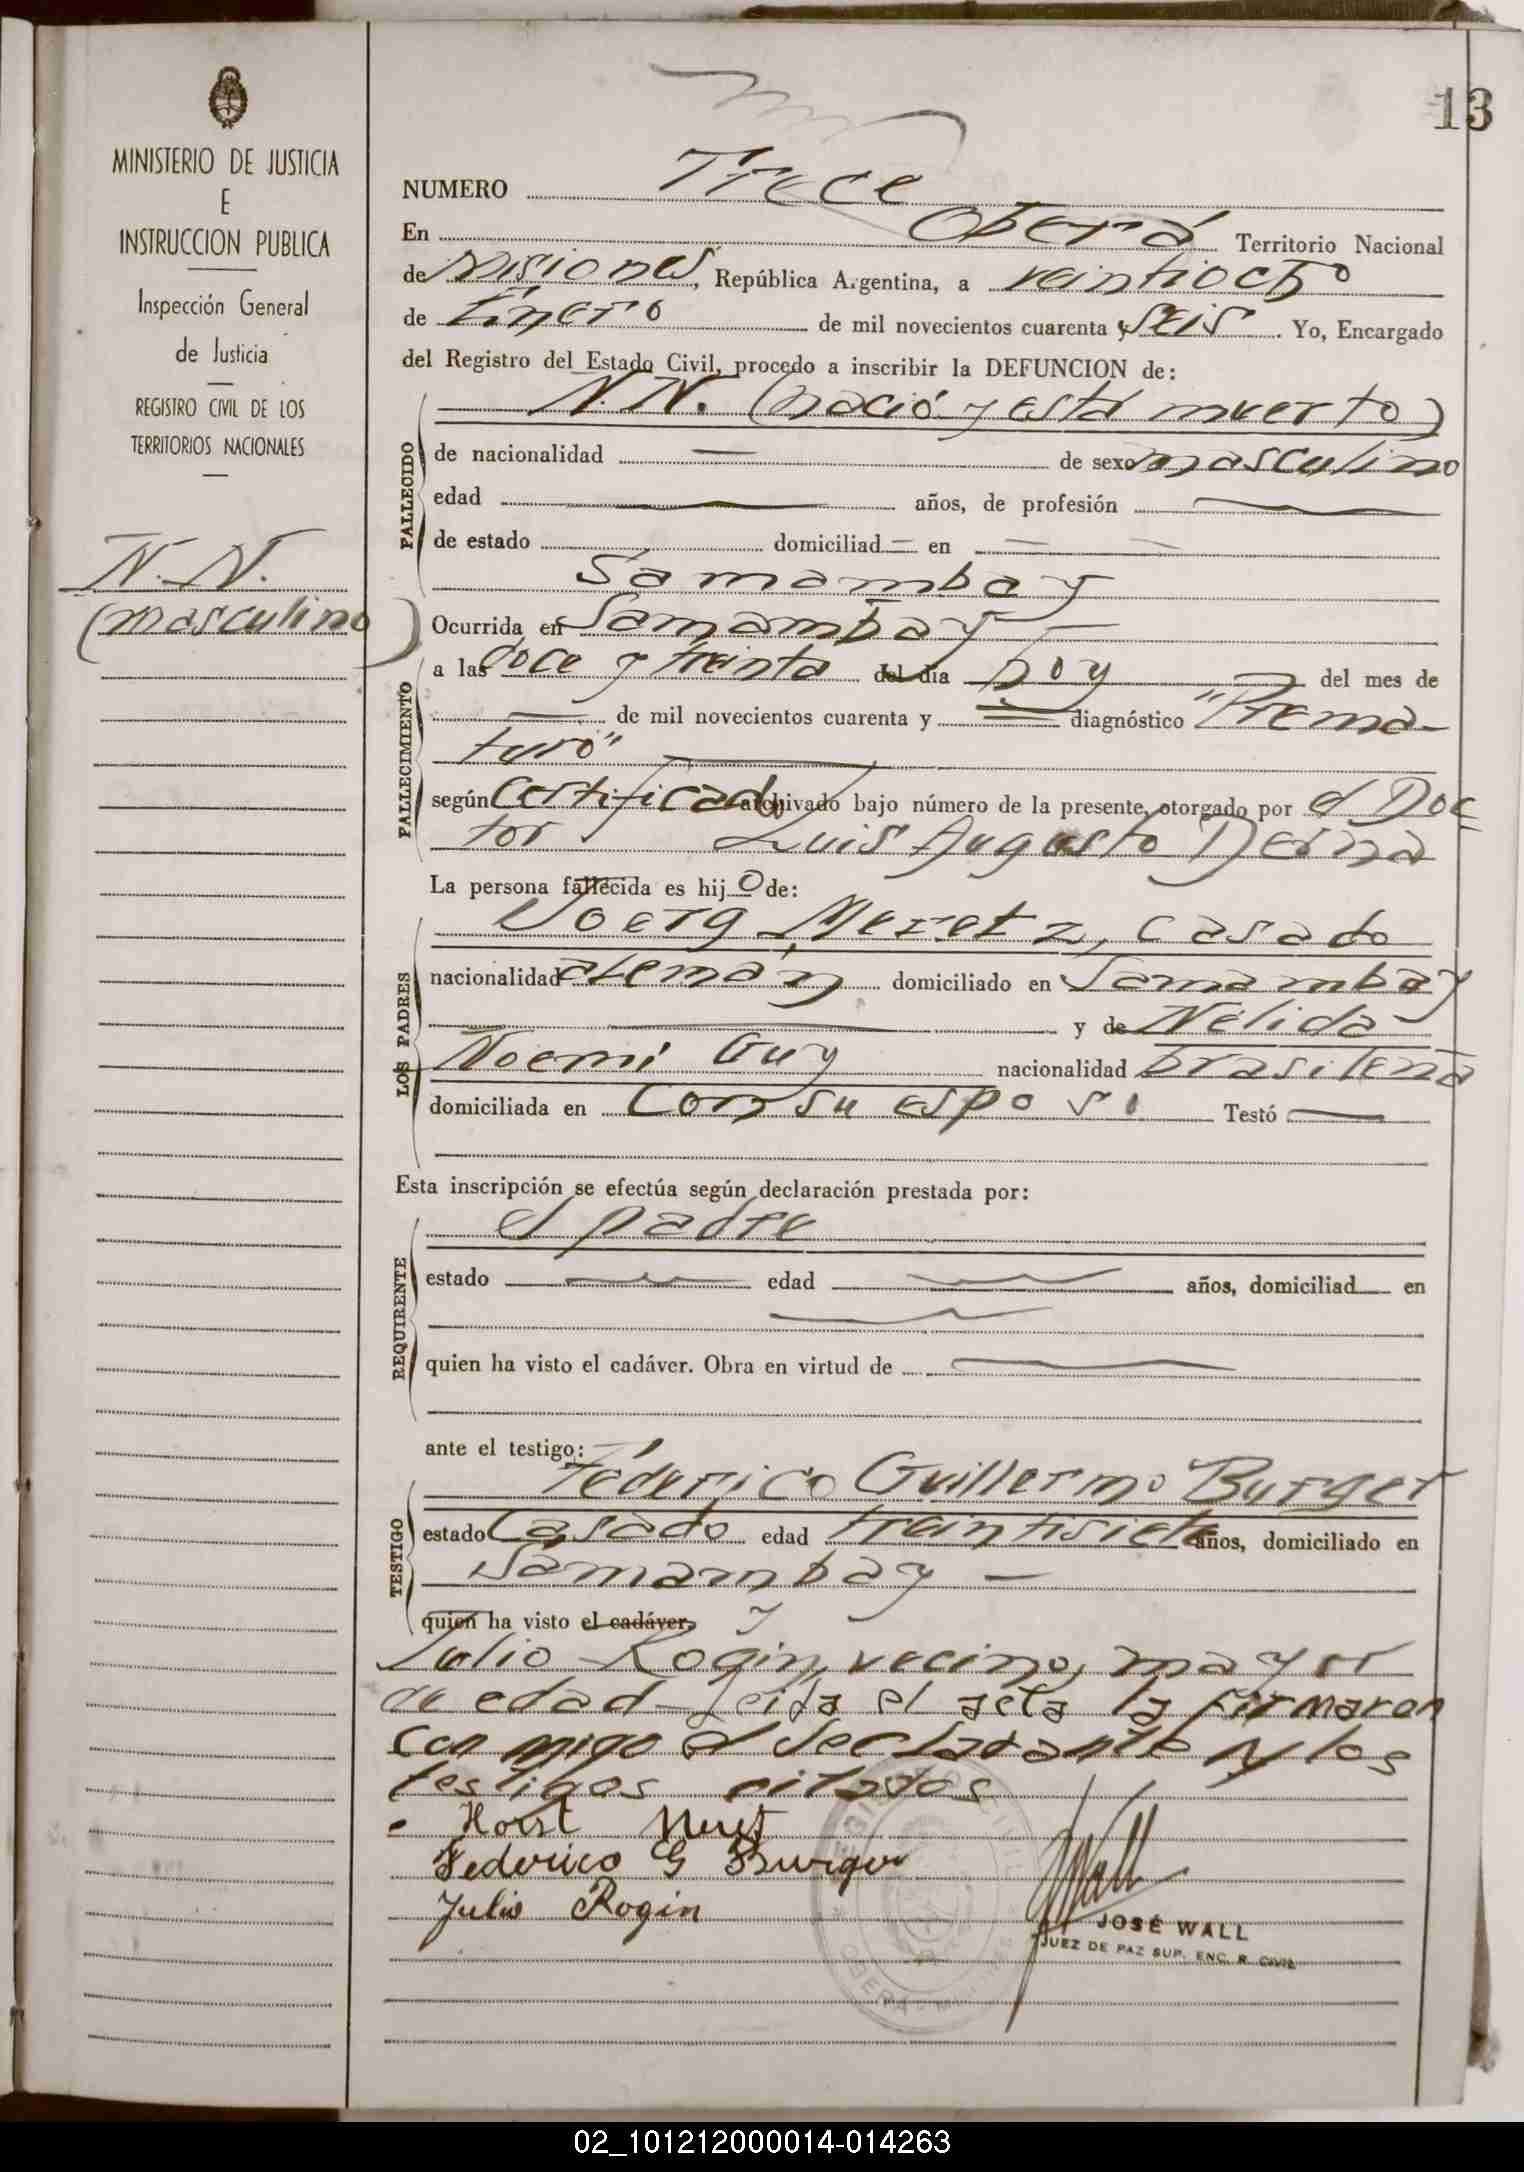 13
MINISTERIO DE JUSTICIA
E
INSTRUCCION PUBLICA
Inspección General
de Justicia
REGISTRO CIVIL DE LOS
TERRITORIOS NACIONALES
N. N.
(masculino)
NUMERO Trece
En Oberá Territorio Nacional
de Misiones, República Argentina, a veintiocho
de Enero de mil novecientos cuarenta y seis. Yo, Encargado
del Registro del Estado Civil, procedo a inscribir la DEFUNCION de:
N.N. (nació y está muerto)
FALLECIDO
de nacionalidad — de sexo masculino
edad — años, de profesión —
de estado domiciliad — en — —
Samambay
Ocurrida en Samambay —
FALLECIMIENTO
a las doce y treinta del día hoy — del mes de
— de mil novecientos cuarenta y — diagnóstico "Prema-
turo" —
según certificado archivado bajo número de la presente, otorgado por el Doc
tor Luis Augusto Derna
La persona fallecida es hijo de:
LOS PADRES
casado
nacionalidad alemán domiciliado en Samambay
— y de Nélida
Noemi Guy nacionalidad brasileña
domiciliada en con su esposo Testó —
Esta inscripción se efectúa según declaración prestada por:
REQUIRENTE
el padre
estado — edad — años, domiciliad en
—
quien ha visto el cadáver. Obra en virtud de —
ante el testigo:
TESTIGO
Féderico Guillermo Burger
estado Casado edad treintisiete años, domiciliado en
Samambay —
quien ha visto el cadáver, y
Julio Rogin, vecino, mayor
de edad - Leida el acta la firmaron
con migo el declarante y los
testigos citados
Horst
Federico G Burger
Julio Rogin
JWall
JOSÉ WALL
JUEZ DE PAZ SUP. ENC. R. CIVIL
REGISTRO CIVIL
OBERA - MISIONES
02_101212000014-014263